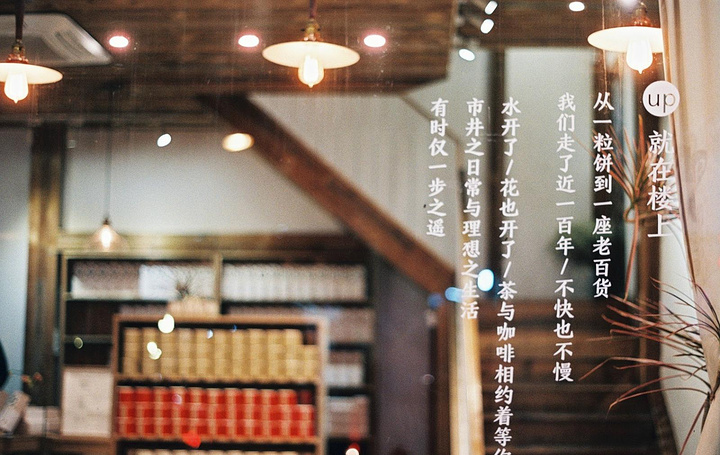 up
就在楼上
从一粒饼到一座老百货
我们走了近一百年/不快也不慢
水开了/花也开了/茶与咖啡相约着等
市井之日常与理想之生活
有时仅一步之遥